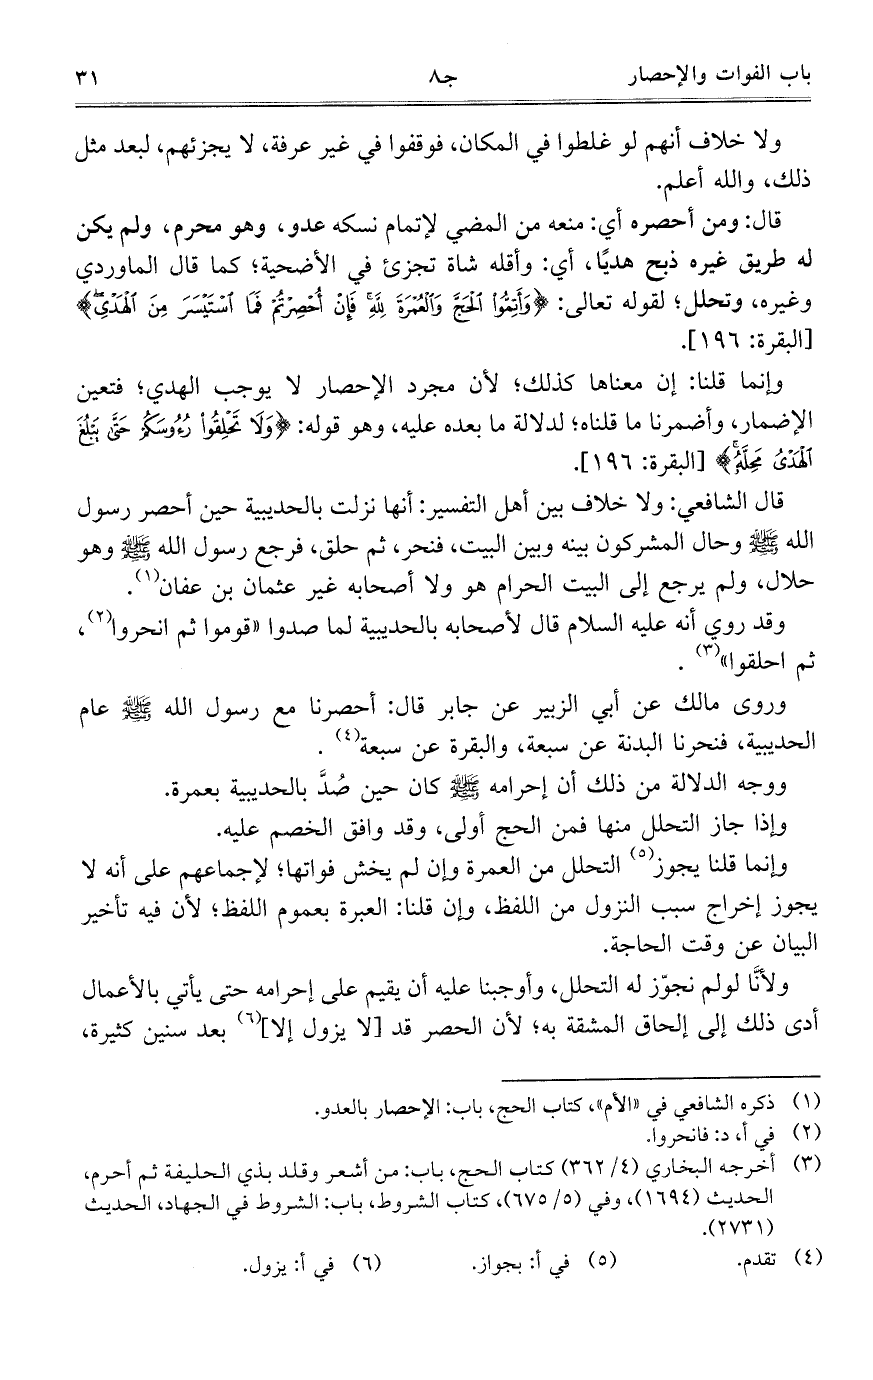 باب الفوات والإحصار ج٨ ٣١
ولا خلاف أنهم لو غلطوا في المكان، فوقفوا في غير عرفة، لا يجزئهم، لبعد مثل
ذلك، والله أعلم.
قال: ومن أحصره أي: منعه من المضي لإتمام نسكه عدو، وهو محرم، ولم يكن
له طريق غيره ذبح هديًا، أي: وأقله شاة تجزئ في الأضحية؛ كما قال الماوردي
وغيره، وتحلل؛ لقوله تعالى: ﴿وَأَتِمُّوا۟ ٱلْحَجَّ وَٱلْعُمْرَةَ لِلَّهِ ۚ فَإِنْ أُحْصِرْتُمْ فَمَا ٱسْتَيْسَرَ مِنَ ٱلْهَدْىِ ۖ﴾
[البقرة: ١٩٦].
وإنما قلنا: إن معناها كذلك؛ لأن مجرد الإحصار لا يوجب الهدي؛ فتعين
الإضمار، وأضمرنا ما قلناه؛ لدلالة ما بعده عليه، وهو قوله: ﴿وَلَا تَحْلِقُوا۟ رُءُوسَكُمْ حَتَّىٰ يَبْلُغَ
ٱلْهَدْىُ مَحِلَّهُۥ ۚ﴾ [البقرة: ١٩٦].
قال الشافعي: ولا خلاف بين أهل التفسير: أنها نزلت بالحديبية حين أحصر رسول
الله ﷺ وحال المشركون بينه وبين البيت، فنحر، ثم حلق، فرجع رسول الله ﷺ وهو
حلال، ولم يرجع إلى البيت الحرام هو ولا أصحابه غير عثمان بن عفان(١).
وقد روي أنه عليه السلام قال لأصحابه بالحديبية لما صدوا «قوموا ثم انحروا(٢)،
ثم احلقوا»(٣) .
وروى مالك عن أبي الزبير عن جابر قال: أحصرنا مع رسول الله ﷺ عام
الحديبية، فنحرنا البدنة عن سبعة، والبقرة عن سبعة(٤) .
ووجه الدلالة من ذلك أن إحرامه ﷺ كان حين صُدَّ بالحديبية بعمرة.
وإذا جاز التحلل منها فمن الحج أولى، وقد وافق الخصم عليه.
وإنما قلنا يجوز(٥) التحلل من العمرة وإن لم يخش فواتها؛ لإجماعهم على أنه لا
يجوز إخراج سبب النزول من اللفظ، وإن قلنا: العبرة بعموم اللفظ؛ لأن فيه تأخير
البيان عن وقت الحاجة.
ولأنَّا لولم نجوّز له التحلل، وأوجبنا عليه أن يقيم على إحرامه حتى يأتي بالأعمال
أدى ذلك إلى إلحاق المشقة به؛ لأن الحصر قد [لا يزول إلا](٦) بعد سنين كثيرة،
(١) ذكره الشافعي في «الأم»، كتاب الحج، باب: الإحصار بالعدو.
(٢) في أ، د: فانحروا.
(٣) أخرجه البخاري (٤/ ٣٦٢) كتاب الحج، باب: من أشعر وقلد بذي الحليفة ثم أحرم،
الحديث (١٦٩٤)، وفي (٥/ ٦٧٥)، كتاب الشروط، باب: الشروط في الجهاد، الحديث
(٢٧٣١).
(٤) تقدم. (٥) في أ: بجواز. (٦) في أ: يزول.